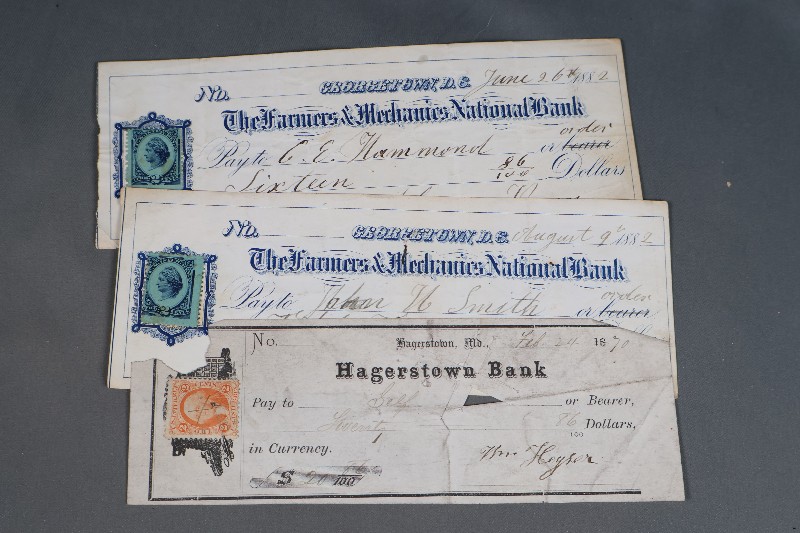 No. GEORGETOWN, D.C. June 26th 1882
The Farmers & Mechanics National Bank
order
Pay to C. E. Hammond or bearer
Sixteen 86/100 Dollars
No. GEORGETOWN, D.C. August 9th 1882
The Farmers & Mechanics National Bank
order
Pay to John H Smith or bearer
No. Hagerstown, Md., Feb 24 1870
Hagerstown Bank
Pay to Self or Bearer,
Twenty 86/100 Dollars,
in Currency.
$ 20 /100 Wm Heyser